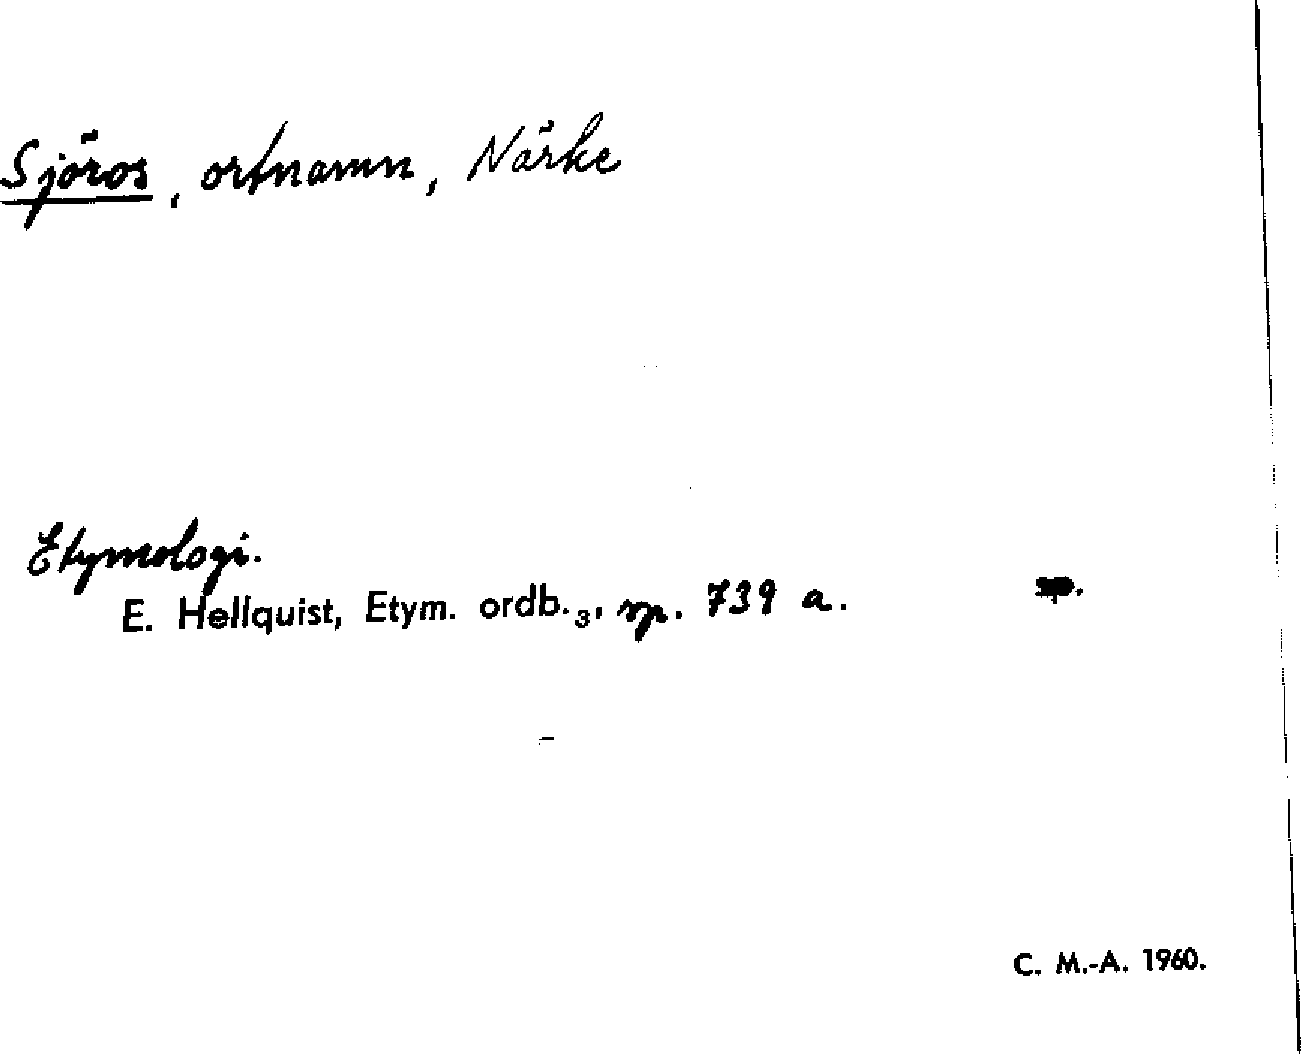 Sjöros, ortnamn, Närke
Etymologi.
E. Hellquist, Etym. ordb.₃, sp. 739 a.
C. M.-A. 1960.